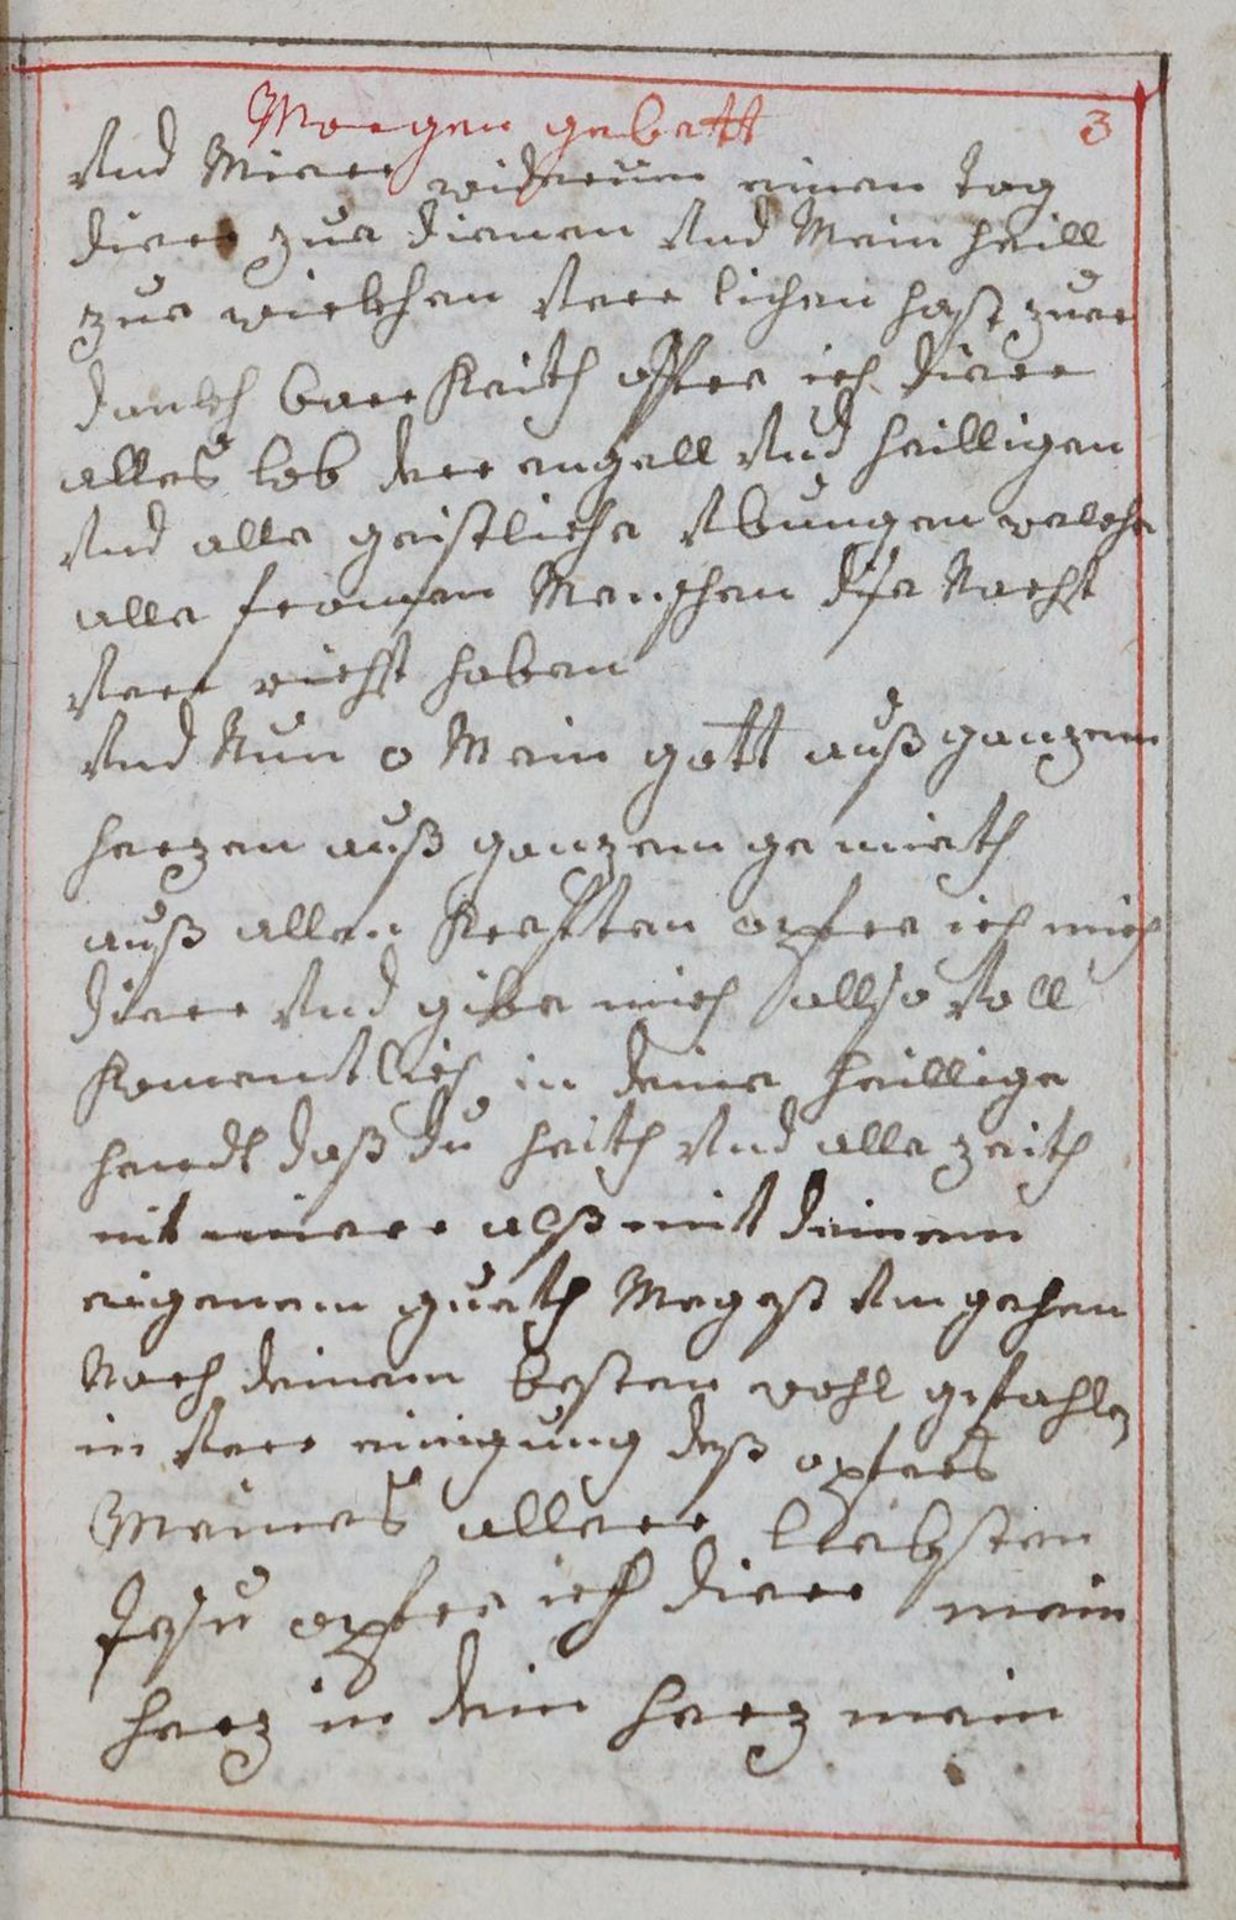 Morgen gebett 3
Vnd Mierr widerum einen tag
dierr zue dienen Vnd Mein heill
zue wirckhen Verr lichen hast zuer
danckh barr Keith opfere ich dierr
alles lob derr engell Vnd heilligen
Vnd alle geistliche Vbungen welche
alle fromen Menschen dise Nacht
Verr richt haben
Vnd Nun o Mein gott auß ganzem
herzen auß ganzem gemieth
auß allen Krefften opfere ich mich
dierr Vnd gibe mich allso Voll
Komentlich in deine heillige
hendt daß du heith Vnd alle zeith
mit mierr alß mit deinem
eigenem gueth Megest Vmgehen
Nach deinem besten wohl gefahlen
in Verr einigung deß opfers
Meines allerr liebsten
Jesu opfere ich dierr mein
herz in dein herz mein